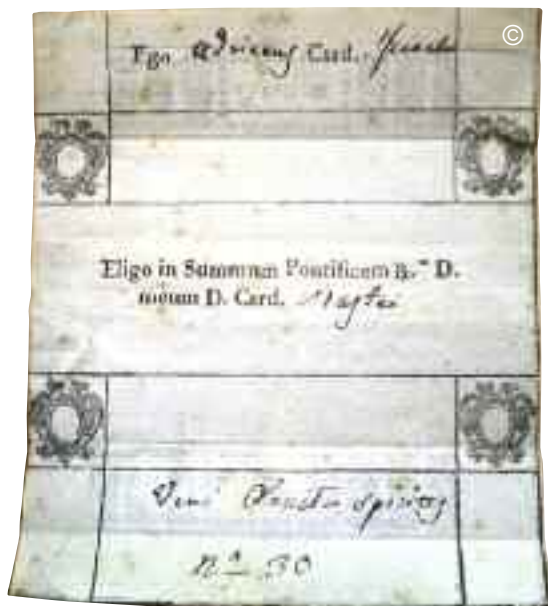 ©
Ego Adrianus Card.
Eligo in Summum Pontificem R.ᵐ D.
meum D. Card. Mastai
Veni Sancte Spiritus
Nº 30